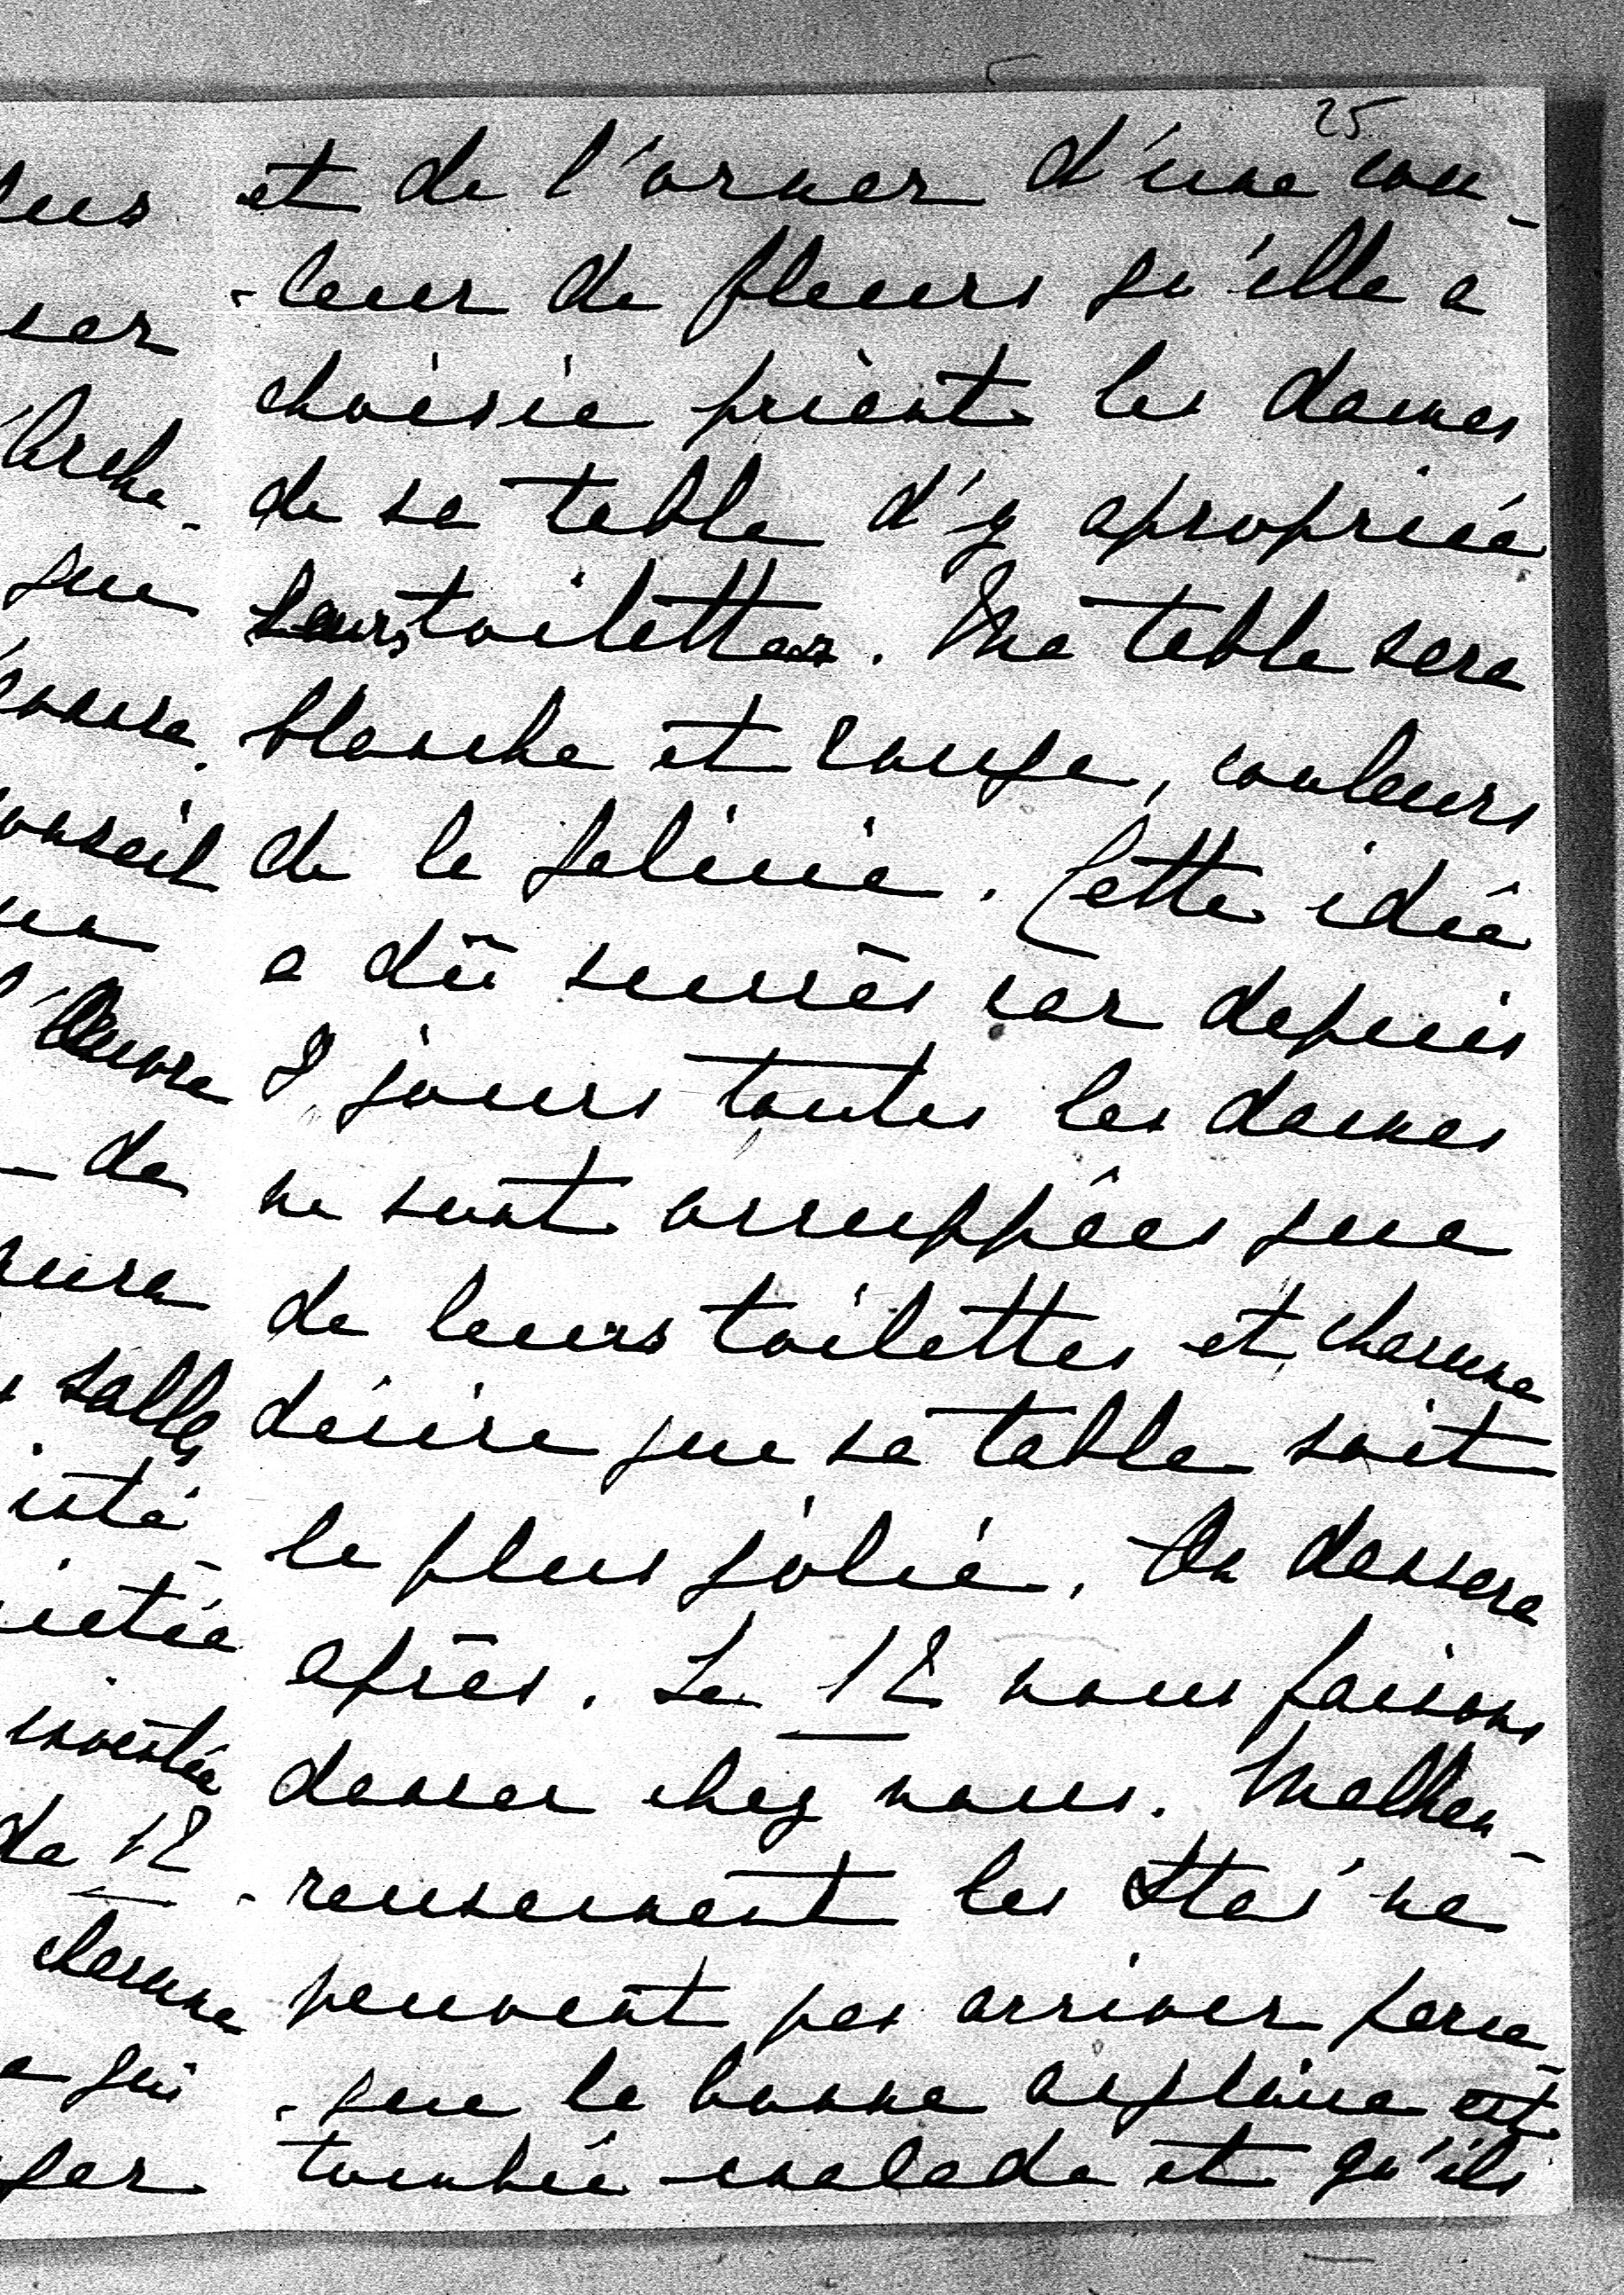 25
et de l'orner d'une cou-
-leur de fleurs qu'elle a
choisie priant les dames
de sa table d'y aproprié
leurs toilettes. Ma table sera
blanche et rouge, couleurs
de la Galicie. Cette idée
a du succès car depuis
8 jours toutes les dames
ne sont occuppées que
de leurs toilettes et chacune
désire que sa table soit
la plus jolie. On dansera
après. Le 12 nous faisons
danser chez nous. Malheu-
-reusement les ne
peuvent pas arriver parce-
-que la bonne est
tombée malade et qu'ils
ser
que
conseil
de
salle
inventée
de 12
chacune
qui